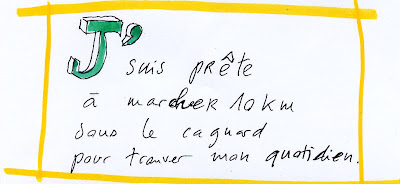 J'suis prête
à marcher 10 km
sous le cagnard
pour trouver mon quotidien.